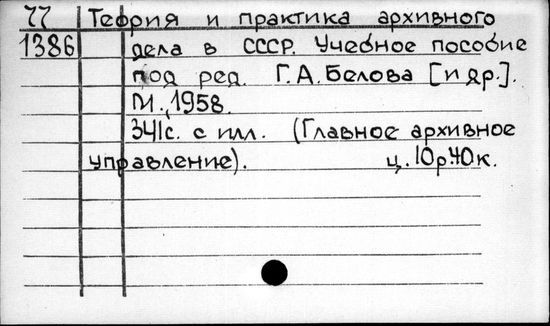 77 Теория и практика архивного
1386 дела в СССР. Учебное пособие
под ред. Г.А.Белова [и др.].
М., 1958.
341с. с илл. (Главное архивное
управление). ц.10р40к.